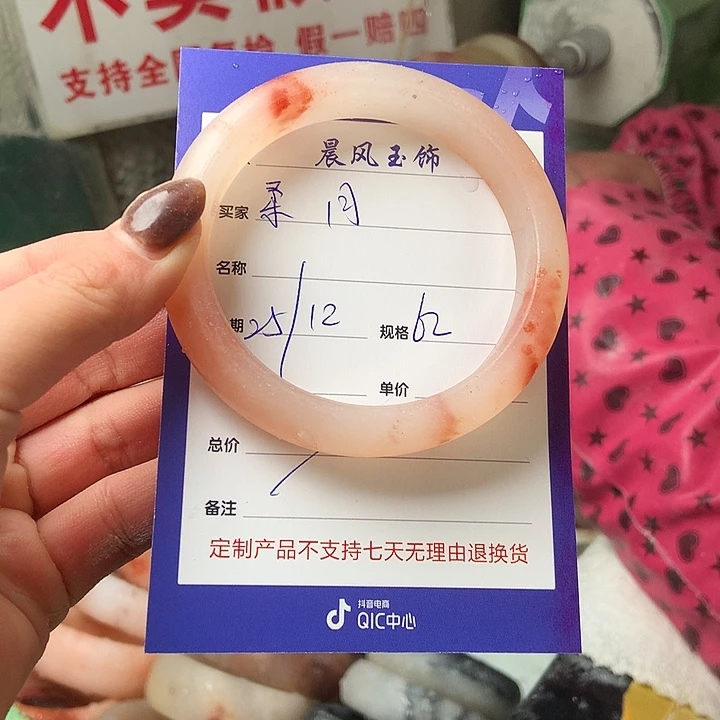 支持全国复检 假一赔四
晨风玉饰
买家 桑 月
名称
期 25/12 规格 62
单价
总价
备注
定制产品不支持七天无理由退换货
抖音电商
QIC中心